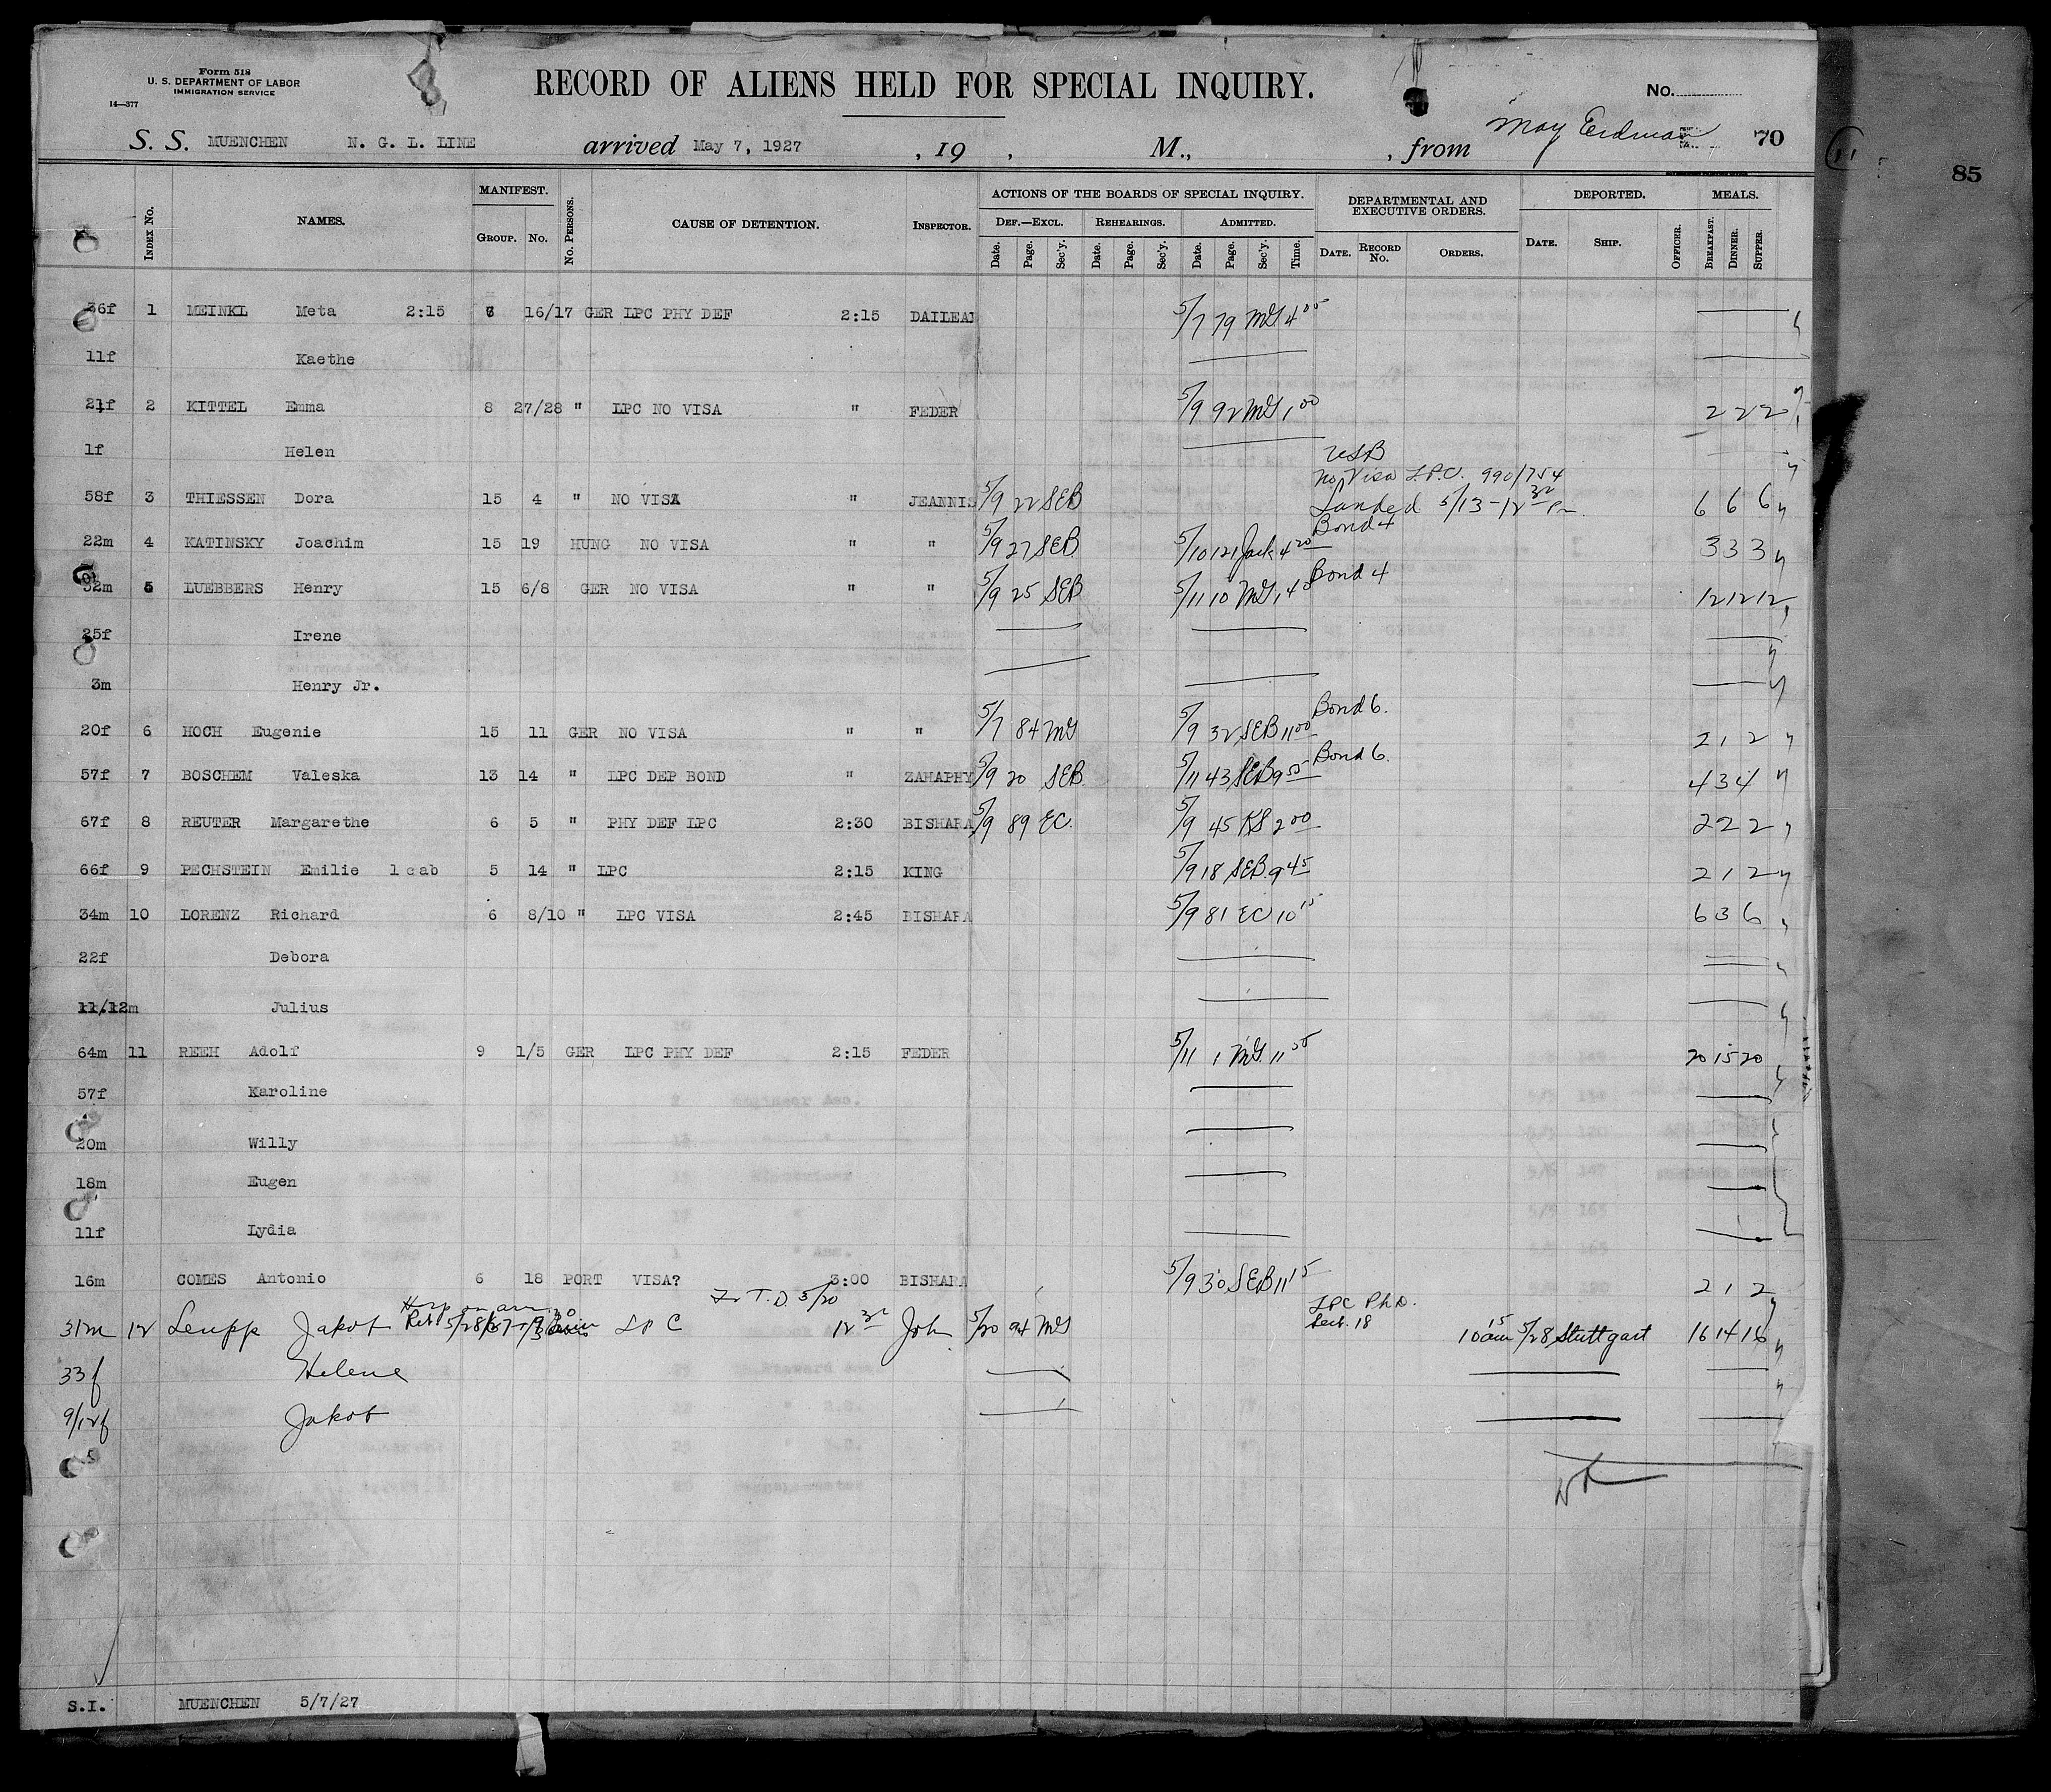 Form 518
U. S. DEPARTMENT OF LABOR
IMMIGRATION SERVICE
14—377
RECORD OF ALIENS HELD FOR SPECIAL INQUIRY.
No.
S. S. MUENCHEN N. G. L. LINE arrived May 7, 1927 , 19 , M., , from May Erdman 70
85
INDEX No. NAMES. MANIFEST. GROUP. No. No. PERSONS. CAUSE OF DETENTION. INSPECTOR. ACTIONS OF THE BOARDS OF SPECIAL INQUIRY. DEPARTMENTAL AND EXECUTIVE ORDERS. DEPORTED. MEALS.
DEF.—EXCL. REHEARINGS. ADMITTED.
Date. Page. Sec'y. Date. Page. Sec'y. Date. Page. Sec'y. Time. DATE. RECORD No. ORDERS. DATE. SHIP. OFFICER. BREAKFAST. DINNER. SUPPER.
36f 1 MEINKL Meta 2:15 16/17 GER LPC PHY DEF 2:15 DAILEA 5/7 79 MG 4 05
11f Kaethe
21f 2 KITTEL Emma 8 27/28 " LPC NO VISA " FEDER 5/9 92 MG 1 00 2 2 2
1f Helen
USB
No Visa L.P.C. 990/754
58f 3 THIESSEN Dora 15 4 " NO VISA " JEANNIS 5/9 22 SEB Landed 5/13 - 12 30 Pm. 6 6 6
22m 4 KATINSKY Joachim 15 19 HUNG NO VISA " " 5/9 27 SEB 5/10 121 Jack 4 20 Bond 4 3 3 3
32m 5 LUEBBERS Henry 15 6/8 GER NO VISA " " 5/9 25 SEB 5/11 10 MG 1 40 Bond 4 12 12 12
25f Irene
3m Henry Jr.
20f 6 HOCH Eugenie 15 11 GER NO VISA " " 5/7 84 MG 5/9 32 SEB 11 00 Bond 6. 2 1 2
57f 7 BOSCHEM Valeska 13 14 " LPC DEP BOND " ZAHAPHY 5/9 20 SEB 5/11 43 SEB 9 55 Bond 6. 4 3 4
67f 8 REUTER Margarethe 6 5 " PHY DEF LPC 2:30 BISHARA 5/9 89 EC. 5/9 45 KS 2 00 2 2 2
66f 9 PECHSTEIN Emilie 1 cab 5 14 " LPC 2:15 KING 5/9 18 SEB 9 45 2 1 2
34m 10 LORENZ Richard 6 8/10 " LPC VISA 2:45 BISHARA 5/9 81 EC 10 15 6 3 6
22f Debora
11/12m Julius
64m 11 REEH Adolf 9 1/5 GER LPC PHY DEF 2:15 FEDER 5/11 1 MG 11 55 20 15 20
57f Karoline
20m Willy
18m Eugen
11f Lydia
16m COMES Antonio 6 18 PORT VISA? 3:00 BISHARA 5/9 30 SEB 11 15 2 1 2
Hosp on arr. T. D. 5/20 LPC Ph D.
31m 12 Leupp Jakob LPC 12 30 Joh 5/20 94 MG Sect. 18 10 15 am 5/28 Stuttgart 16 14 16
33f Helene
9/12f Jakob
S.I. MUENCHEN 5/7/27